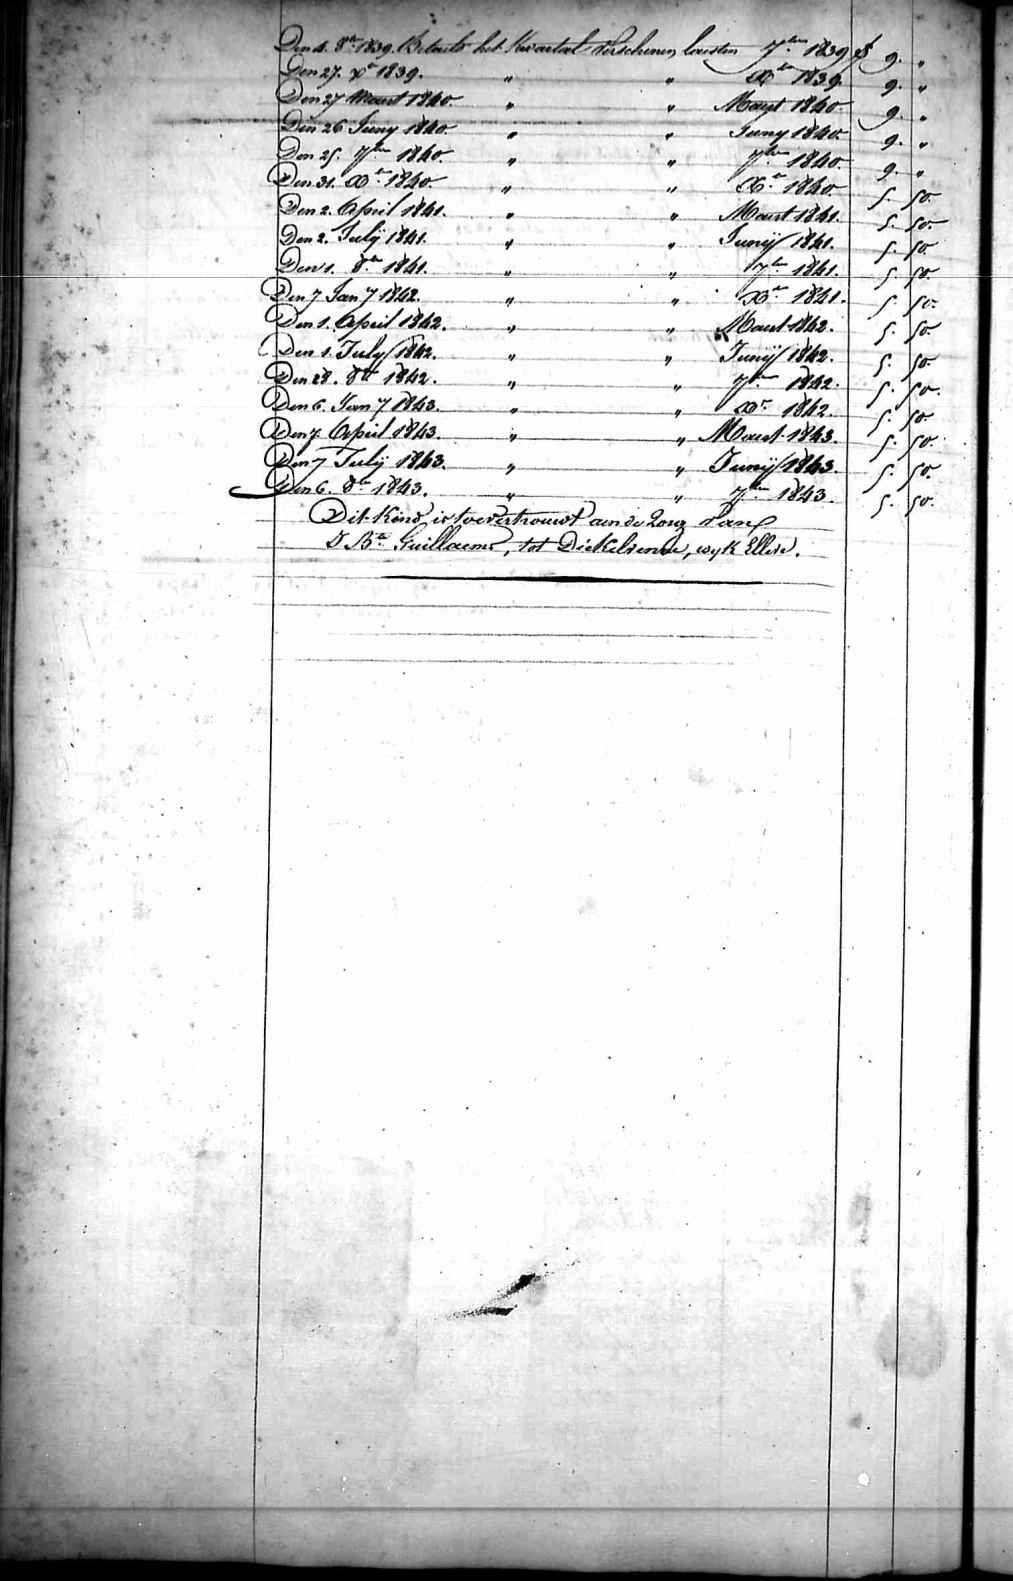 Den 4. 8bre 1839. Betaelt het Kwartael Verschenen lacsten 7bre 1839 f 9. "
Den 27. Xr 1839. " " Xber 1839. 9. "
Den 27 Maert 1840. " " Maert 1840. 9. "
Den 26 Juny 1840 " " Juny 1840. 9. "
Den 25. 7bre 1840. " " 7bre 1840. 9. "
Den 31. Xr 1840. " " Xr 1840. 5. 50.
Den 2. April 1841. " " Maert 1841. 5. 50.
Den 2. July 1841. " " Junij 1841. 5. 50
Den 1. 8bre 1841. " " 7bre 1841. 5. 50
Den 7 Jan 7 1842. " " Xr 1841. 5. 50.
Den 1. April 1842. " " Maert 1842. 5. 50.
Den 1. July 1842. " " Junij 1842. 5. 50.
Den 28. 8bre 1842. " " 7bre 1842. 5. 50.
Den 6. Jan 7 1843. " " Xr 1842. 5. 50.
Den 7. April 1843. " " Maert 1843. 5. 50.
Den 7 July 1843. " " Junij 1843. 5. 50.
Den 6. 8bre 1843. " " 7bre 1843. 5. 50.
Dit Kind is toevertrouwt aen de Zorg van
J Bte Guillaeme, tot Dickelvenne, wyk Elleu.